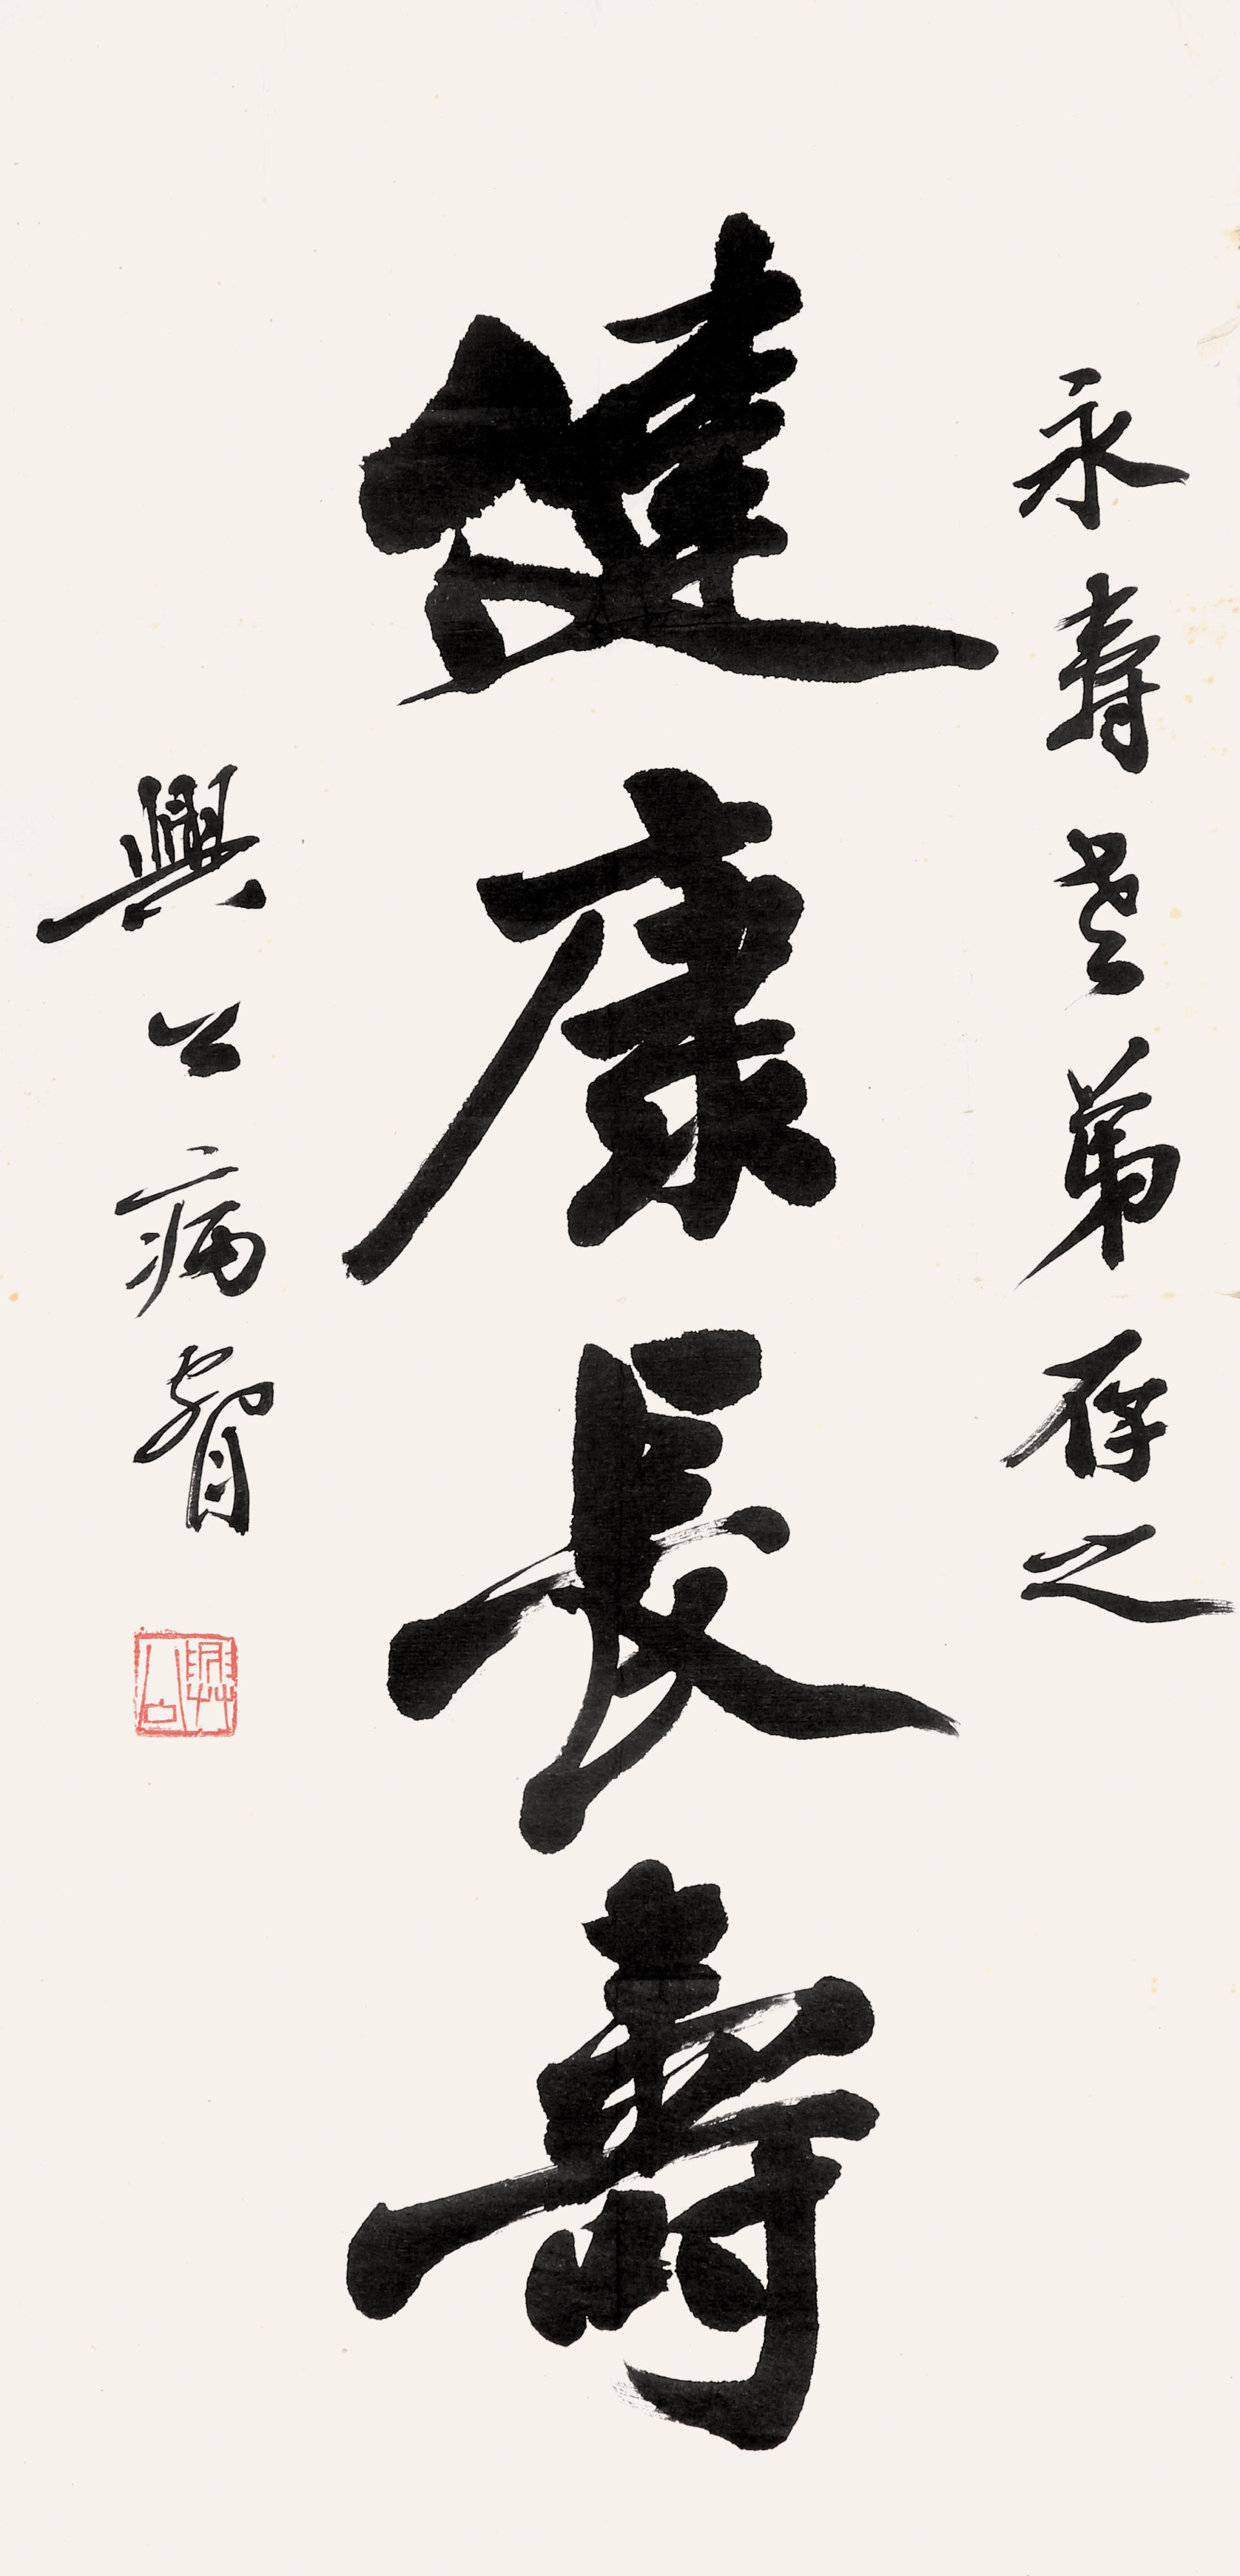 永壽老弟存之
健康長壽
興公病腎
興公